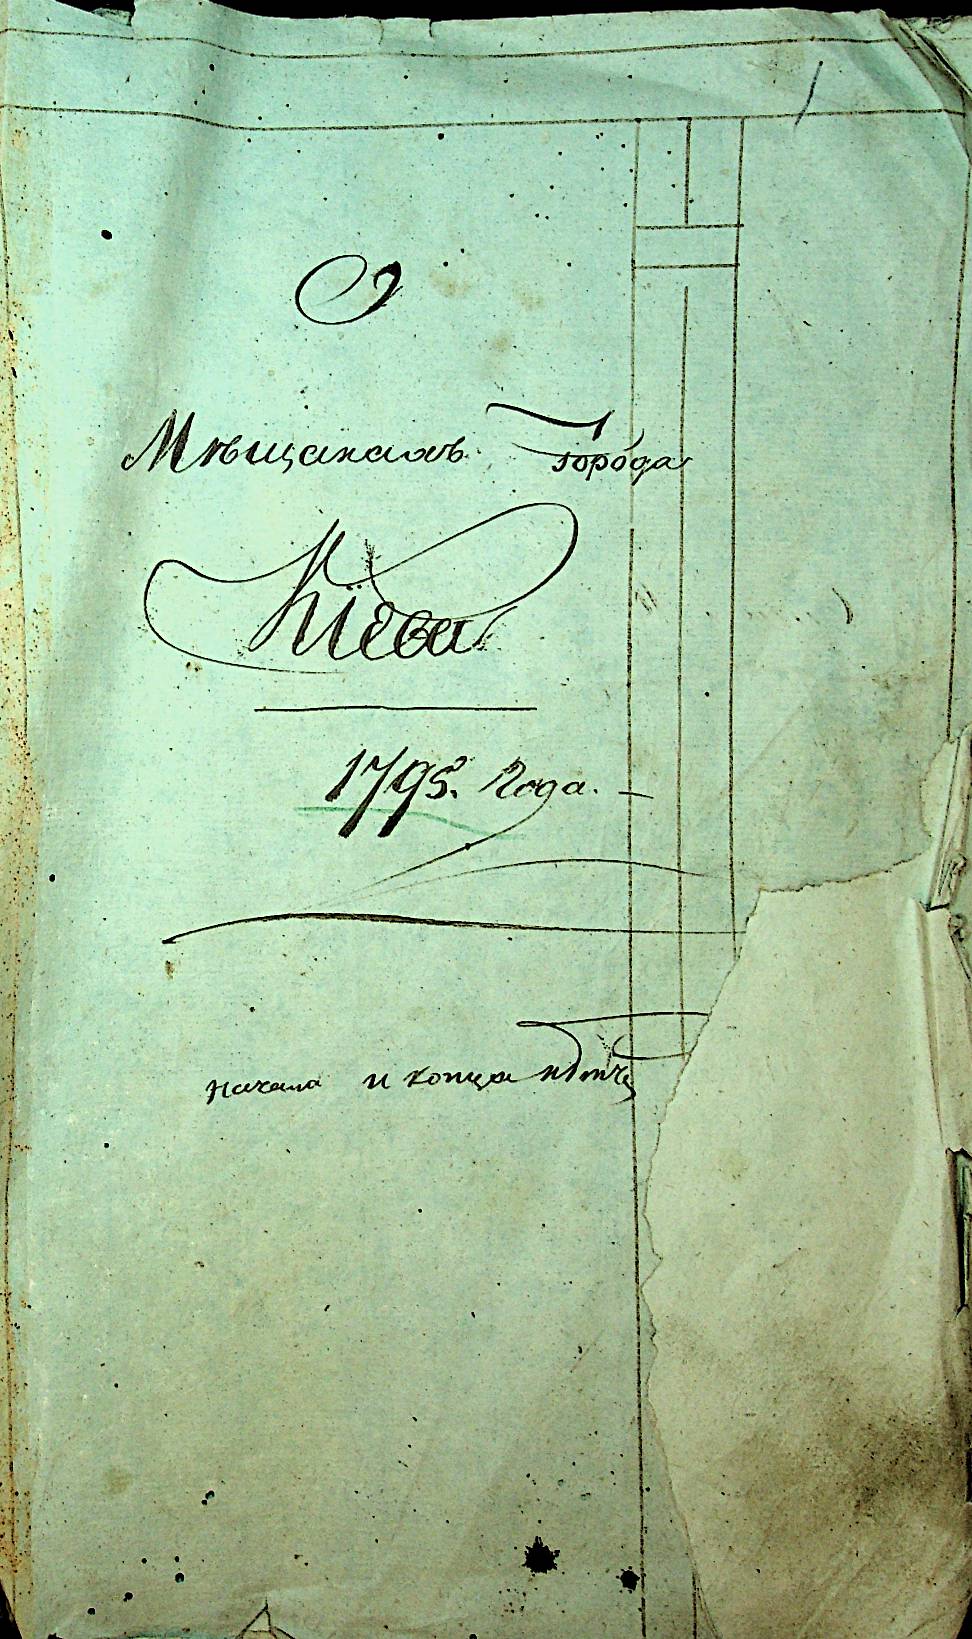 О
Мѣщанахъ города
Кіева
1795. Года.
начала и конца нѣтъ